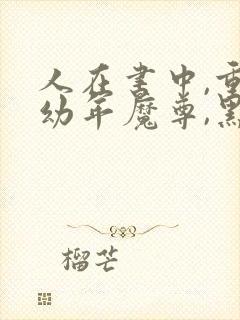 人在书中,重
幼年魔尊,點
榴芒